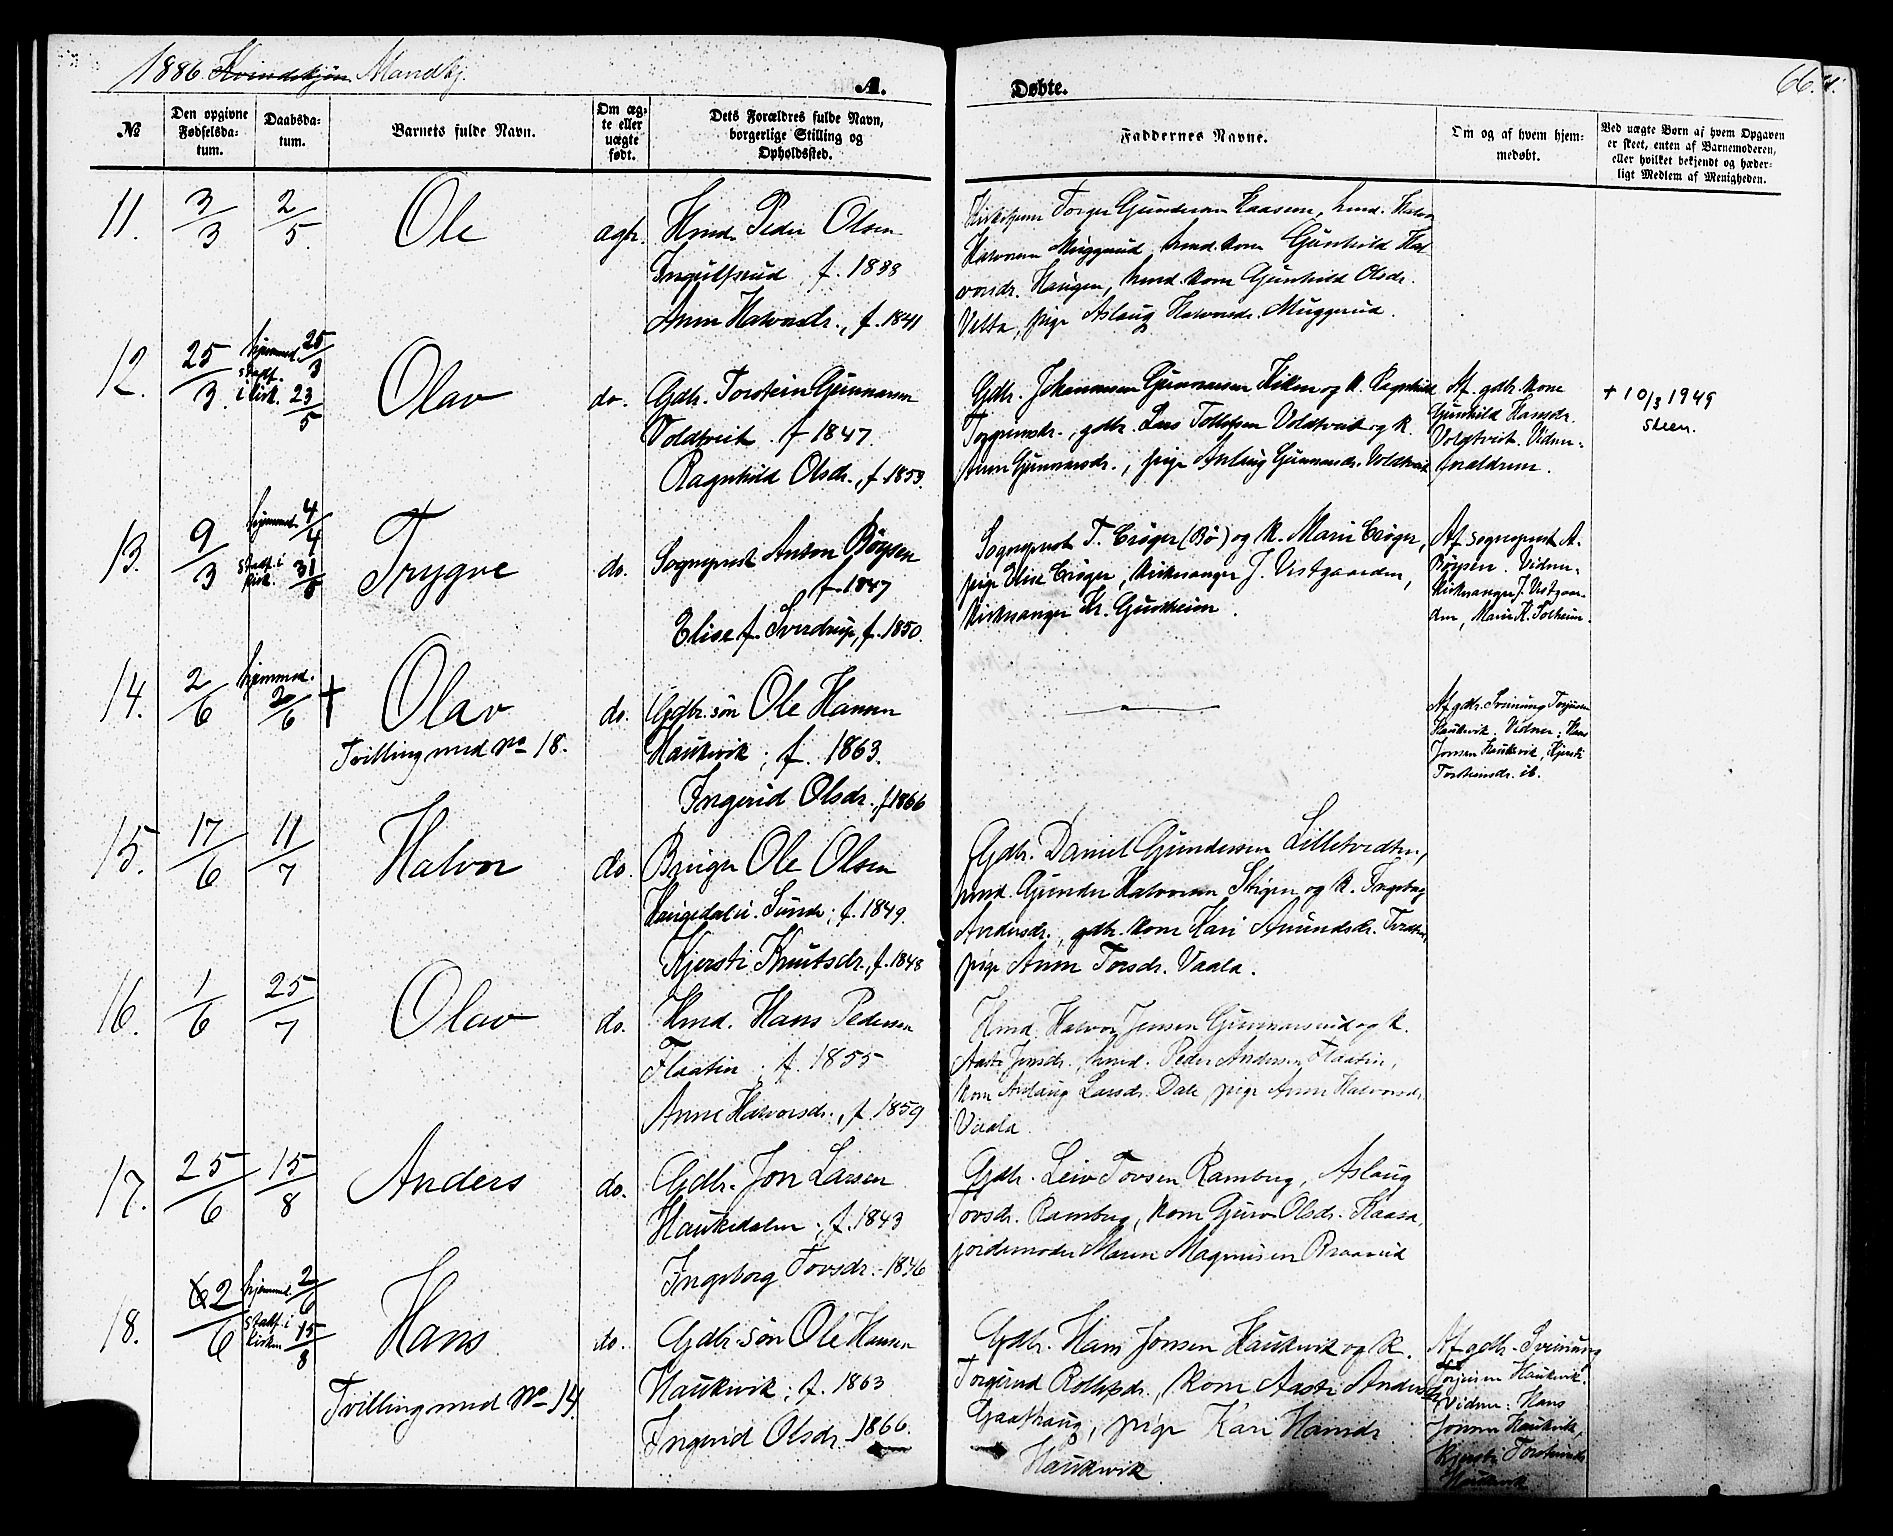 1886. Kvindekjøn Mandkj.
A.
Døbte.
66.
№
Den opgivne
Fødselsda-
tum.
Daabsda-
tum.
Barnets fulde Navn.
Om æg-
te eller
uægte
født.
Dets Forældres fulde Navn,
borgerlige Stilling og
Opholdssted.
Faddernes Navne.
Om og af hvem hjem-
medøbt.
Ved uægte Børn af hvem Opgaven
er skeet, enten af Barnemoderen,
eller hvilket bekjendt og hæder-
ligt Medlem af Menigheden.
11.
3/3
2/5
Ole
ægte.
Hmd. Peder Olsen
Ingulfsrud f. 1838
Anne Halvorsdr., f. 1841
Torger Gundersen Kaasene, hmd. Halvor
Halvorsen Muggerud, hmd. kone Gunhild Hal-
vorsdr. Haugen, hmd. kone Gunhild Olsdr.
Velta, pige Aslaug Halvorsdr. Muggerud.
12.
25/3
hjemmed. 25/3
stadf.
i kirk. 23/5
Olav
do.
Gdbr. Torstein Gunnarsen
Voldtveit f. 1847.
Ragnhild Olsdr., f. 1853.
Gdbr. Johannesen Gunnarsen og k. Ragnhild
Torgrimsdr., gdbr. Lars Tollefsen Voldtveit og k.
Anne Gunnarsdr., pige Aslaug Gunnarsdr. Voldtveit
Af gdbr. kone
Gunhild Hansdr.
Voldtveit. Vidner-
forældrene.
+ 10/3 1949
Skien.
13.
9/3
hjemmed. 4/4
stadf. i
kirk. 31/5
Trygve
do.
Sogneprest Anton Børsen
f. 1847
Elise f. Sverdrup, f. 1850.
Sogneprest T. Crøger (Bø) og k. Marie Crøger,
pige Elise Crøger, kirkesanger J. Vestgaarden,
kirkesanger Kr. Gurheim.
Af sogneprest A.
Børsen. Vidner-
kirkesanger J. Vestgaar-
den, Marie K. Solheim.
14.
2/6
hjemmed.
2/6
+
Olav
Tvilling med No 18.
do.
Gdbr. søn Ole Hansen
Haukvik; f. 1863.
Ingerid Olsdr. f. 1866
Af gdbr. Sveinung Torjusen
Haukvik. Vidner: Hans
Jonsen Haukvik, Kjersti
Torsteinsdr. ib.
15.
17/6
11/7
Halvor
do.
Bruger Ole Olsen
Haugedalen. Sunde; f. 1849.
Kjersti Knutsdr., f. 1848
Gdbr. Daniel Gundersen Lilletvedten,
hmd. Gunder Halvorsen Stigen og k. Ingeborg
Andersdr., gdbr. kone Kari Amundsdr. Tvedten,
pige Anne Torsdr. Vaala.
16.
1/6
25/7
Olav
do.
Hmd. Hans Pedersen
Flaatin; f. 1855
Anne Halvorsdr., f. 1859
Hmd. Halvor Jensen Gunnarsrud og k.
Aaste Jonsdr., hmd. Peder Andersen Flaatin,
kone Aslaug Larsdr. Dale, pige Anne Halvorsdr.
Vaala.
17.
25/6
15/8
Anders
do.
Gdbr. Jon Larsen
Haukedalen; f. 1843
Ingeborg Tovsdr. - 1846
Gdbr. Leiv Tovsen Ramberg, Aslaug
Tovsdr. Ramberg, kone Guro Olsdr. Kaasa,
jordemoder Maren Magnussen Braarud
18.
2/6
hjemmed. 2/6
stadf. i
kirken 15/8
Hans
Tvilling med No 14.
do.
Gdbr. søn Ole Hansen
Haukvik; f. 1863
Ingerid Olsdr. 1866.
Gdbr. Hans Jonsen Haukvik og k.
Torgerud Rollefsdr., kone Aaste Andersdr.
Gaathaug, pige Kari Hansdr.
Haukvik.
Af gdbr. Sveinung
Torjusen Haukvik.
Vidner: Hans
Jonsen Haukvik,
Kjersti Torsteinsdr.
Haukvik